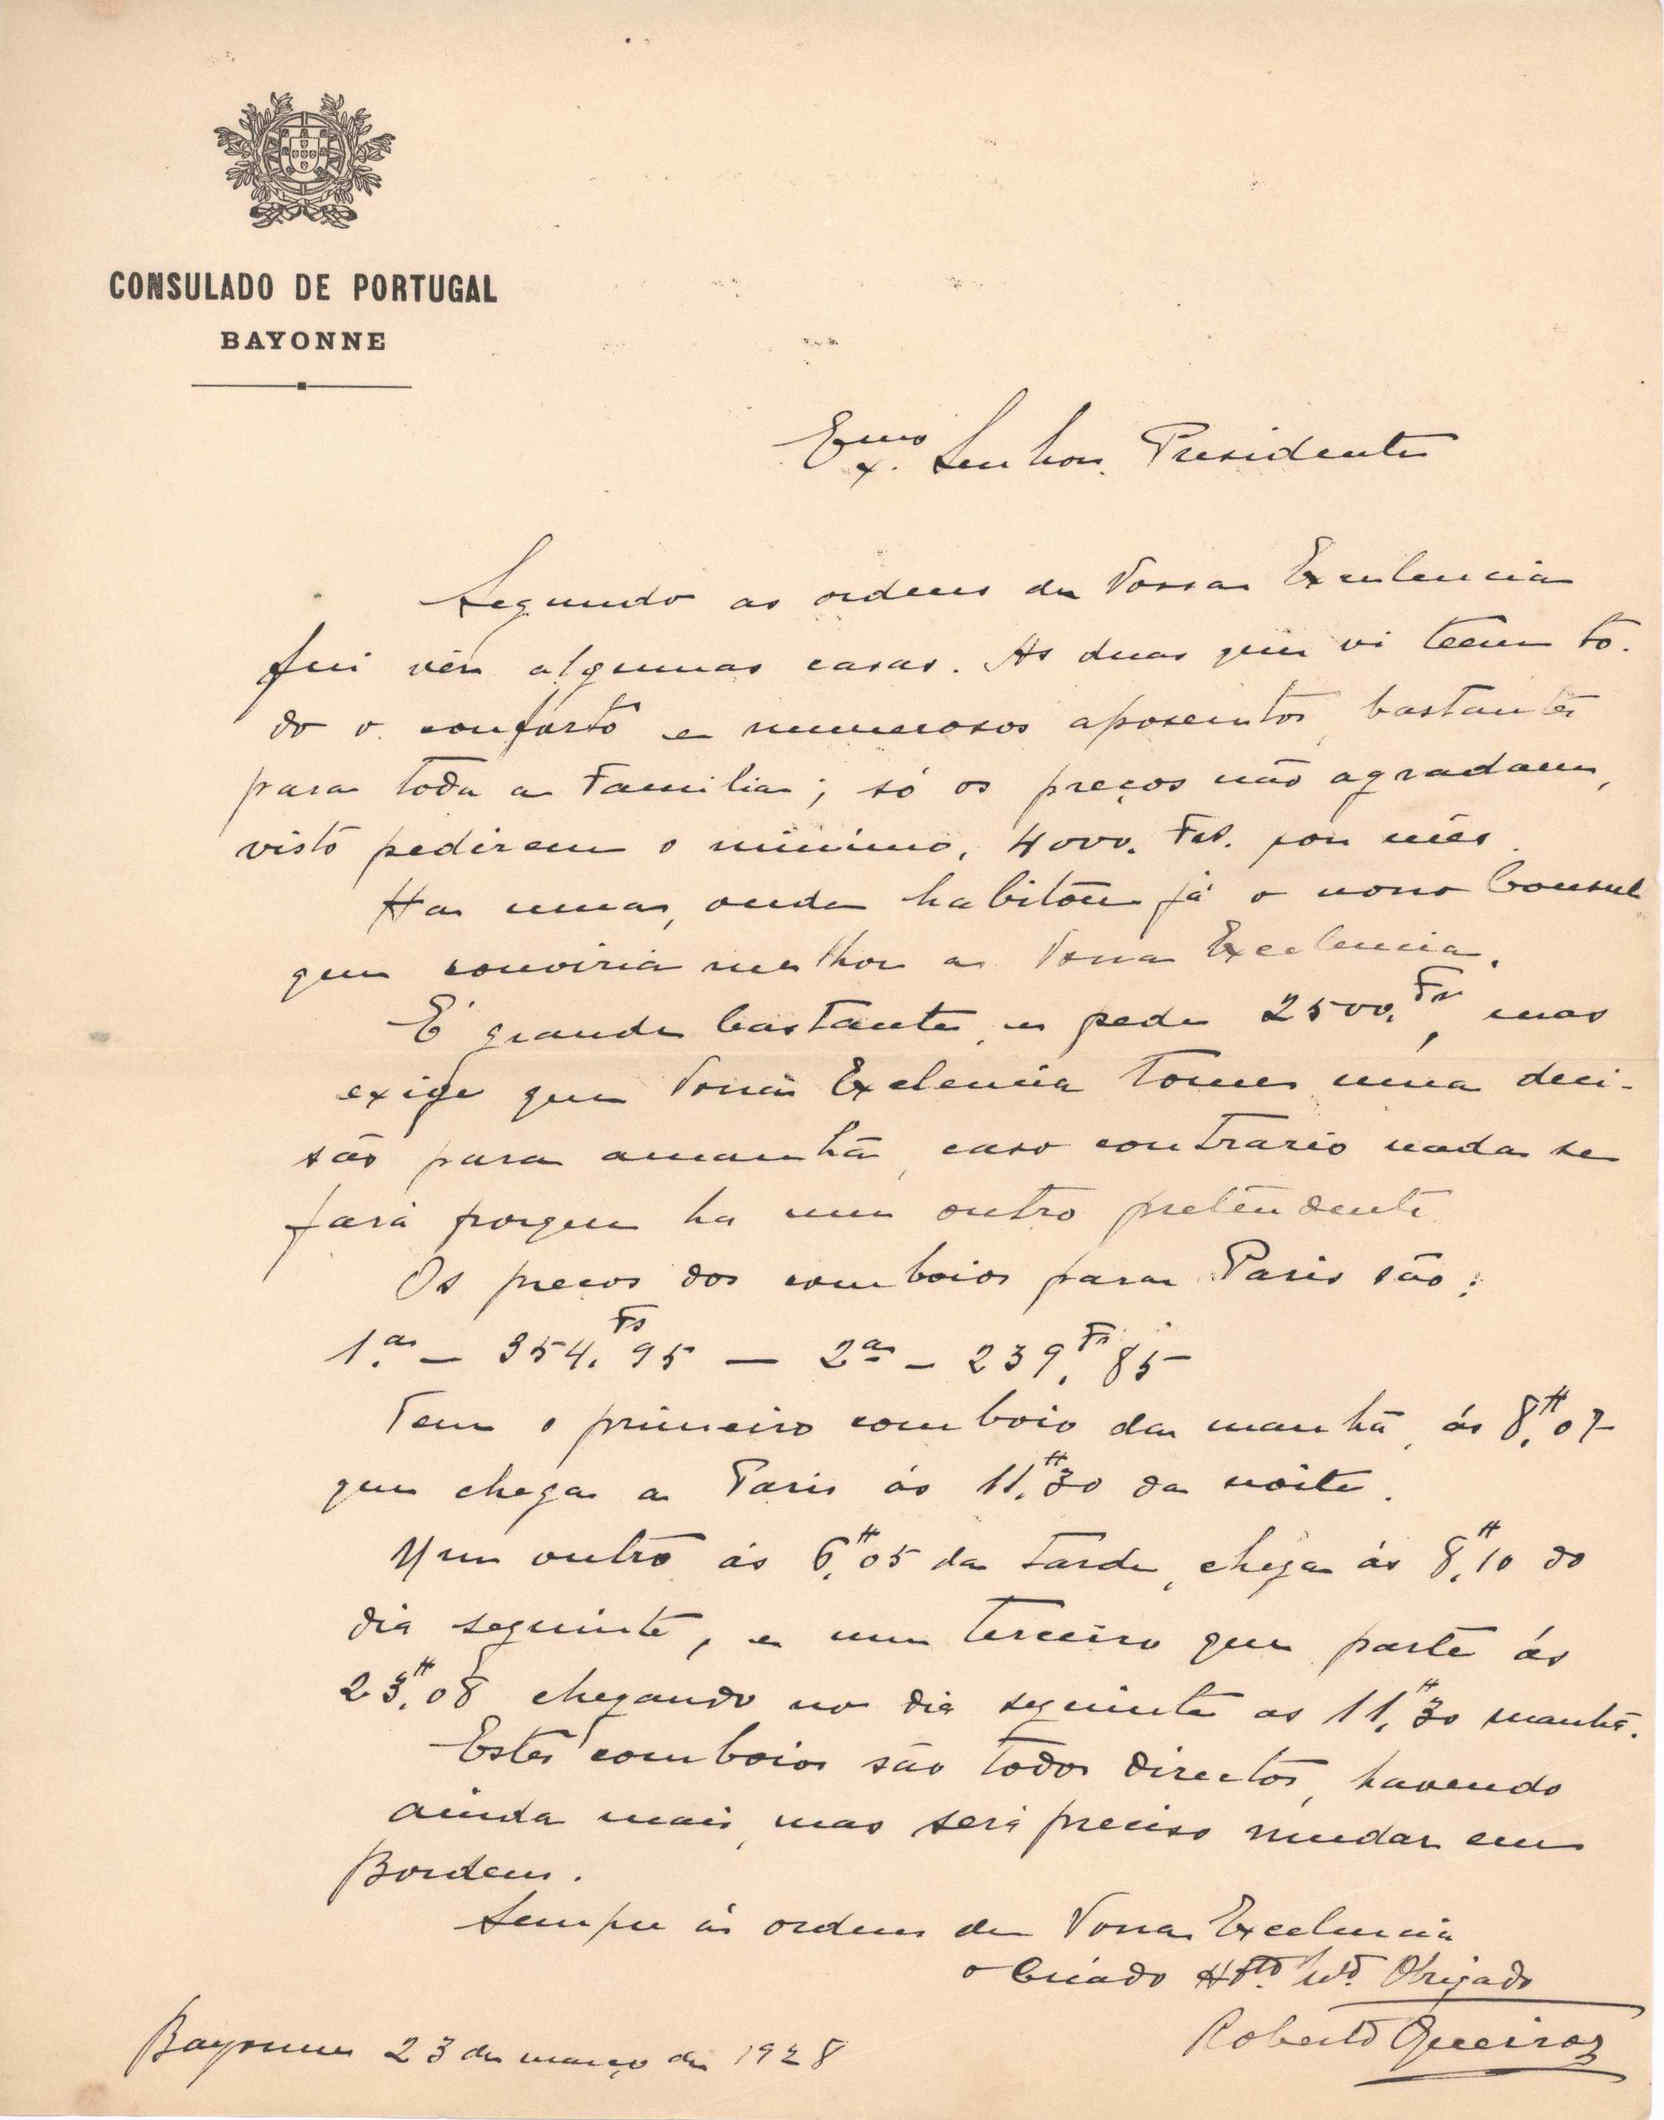 CONSULADO DE PORTUGAL
BAYONNE
Exmo. Senhor. Presidente
Segundo as ordens de Vossa Exelencia
fui vêr algumas casas. As duas que vi teem to-
do o conforto e numerosos aposentos, bastantes
para toda a Familia; só os preços não agradam,
visto pedirem o minimo, 4000. Frs. por mês.
Ha uma, onde habitou já o nosso Consul
que conviria melhor a Vossa Excelencia.
É grande bastante, e pede 2500.Frs, mas
exige que Vossa Exelencia tome uma deci-
são para amanhã, caso contrario nada se
fará porque ha um outro pretendente
Os preços dos comboios para Paris são:
1.as – 354.Fs 95 – 2as – 239.Fs 85
Tem o primeiro comboio da manhã, ás 8.H07
que chega a Paris ás 11.H30 da noite.
Um outro ás 6.H05 da tarde, chega ás 8.H10 do
dia seguinte, e um terceiro que parte ás
23.H08 chegando no dia seguinte as 11.H30 manhã.
Estes comboios são todos directos, havendo
ainda mais, mas será preciso mudar em
Bordeus.
Sempre ás ordens de Vossa Excelencia
o Criado Mto. Obrigado
Roberto Queiroz
Bayonne 23 de março de 1928